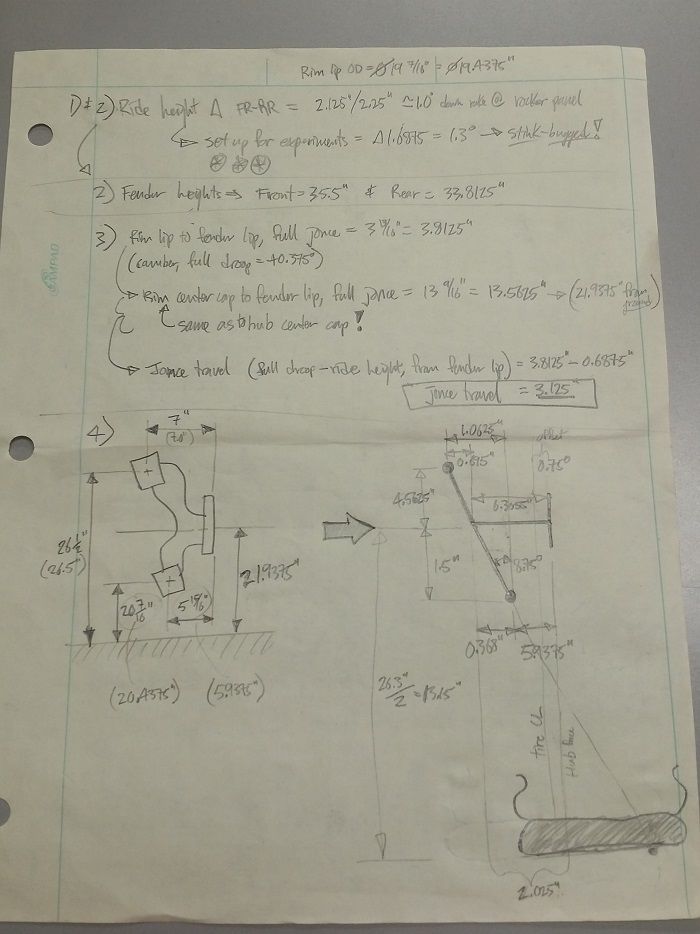 Rim lip OD = Ø19 7/16" = Ø19.4375"
1) & 2) Ride height Δ FR-RR = 2.125"/2.25" ≃ 1.0° down rake @ rocker panel
set up for experiments = Δ1.6875 = 1.3° → stink-bugged!
2) Fender heights ⇒ Front = 35.5" & Rear = 33.8125"
3) Rim lip to fender lip, full jonce = 3 13/16" = 3.8125"
(camber, full droop = +0.375°)
Rim center cap to fender lip, full jonce = 13 9/16" = 13.5625" → (21.9375" from ground)
same as hub center cap!
Jonce travel (full droop - ride height, from fender lip) = 3.8125" - 0.6875"
Jonce travel = 3.125"
AMPAD
4)
7"
(7.0")
26 1/2"
(26.5")
20 7/16"
5 15/16"
21.9375"
(20.4375")
(5.9375")
1.0625"
offset
0.75"
4.5625"
1.5"
8.75°
0.368"
5.9375"
26.3"/2 = 13.15"
tire CL
Hub face
2.025"